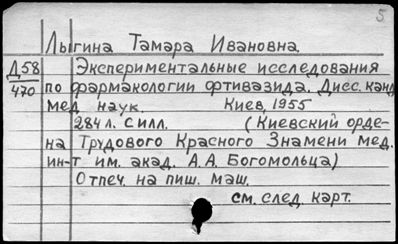 5
Лыгина Тамара Ивановна
Д58 Экспериментальные исследования
470 по фармакологии фтивазида. Дисс. канд.
мед. наук. Киев, 1955
284 л. с илл. (Киевский орде-
на Трудового Красного Знамени мед.
ин-т им. акад. А.А. Богомольца)
Отпеч. на пиш. маш.
см. след. карт.